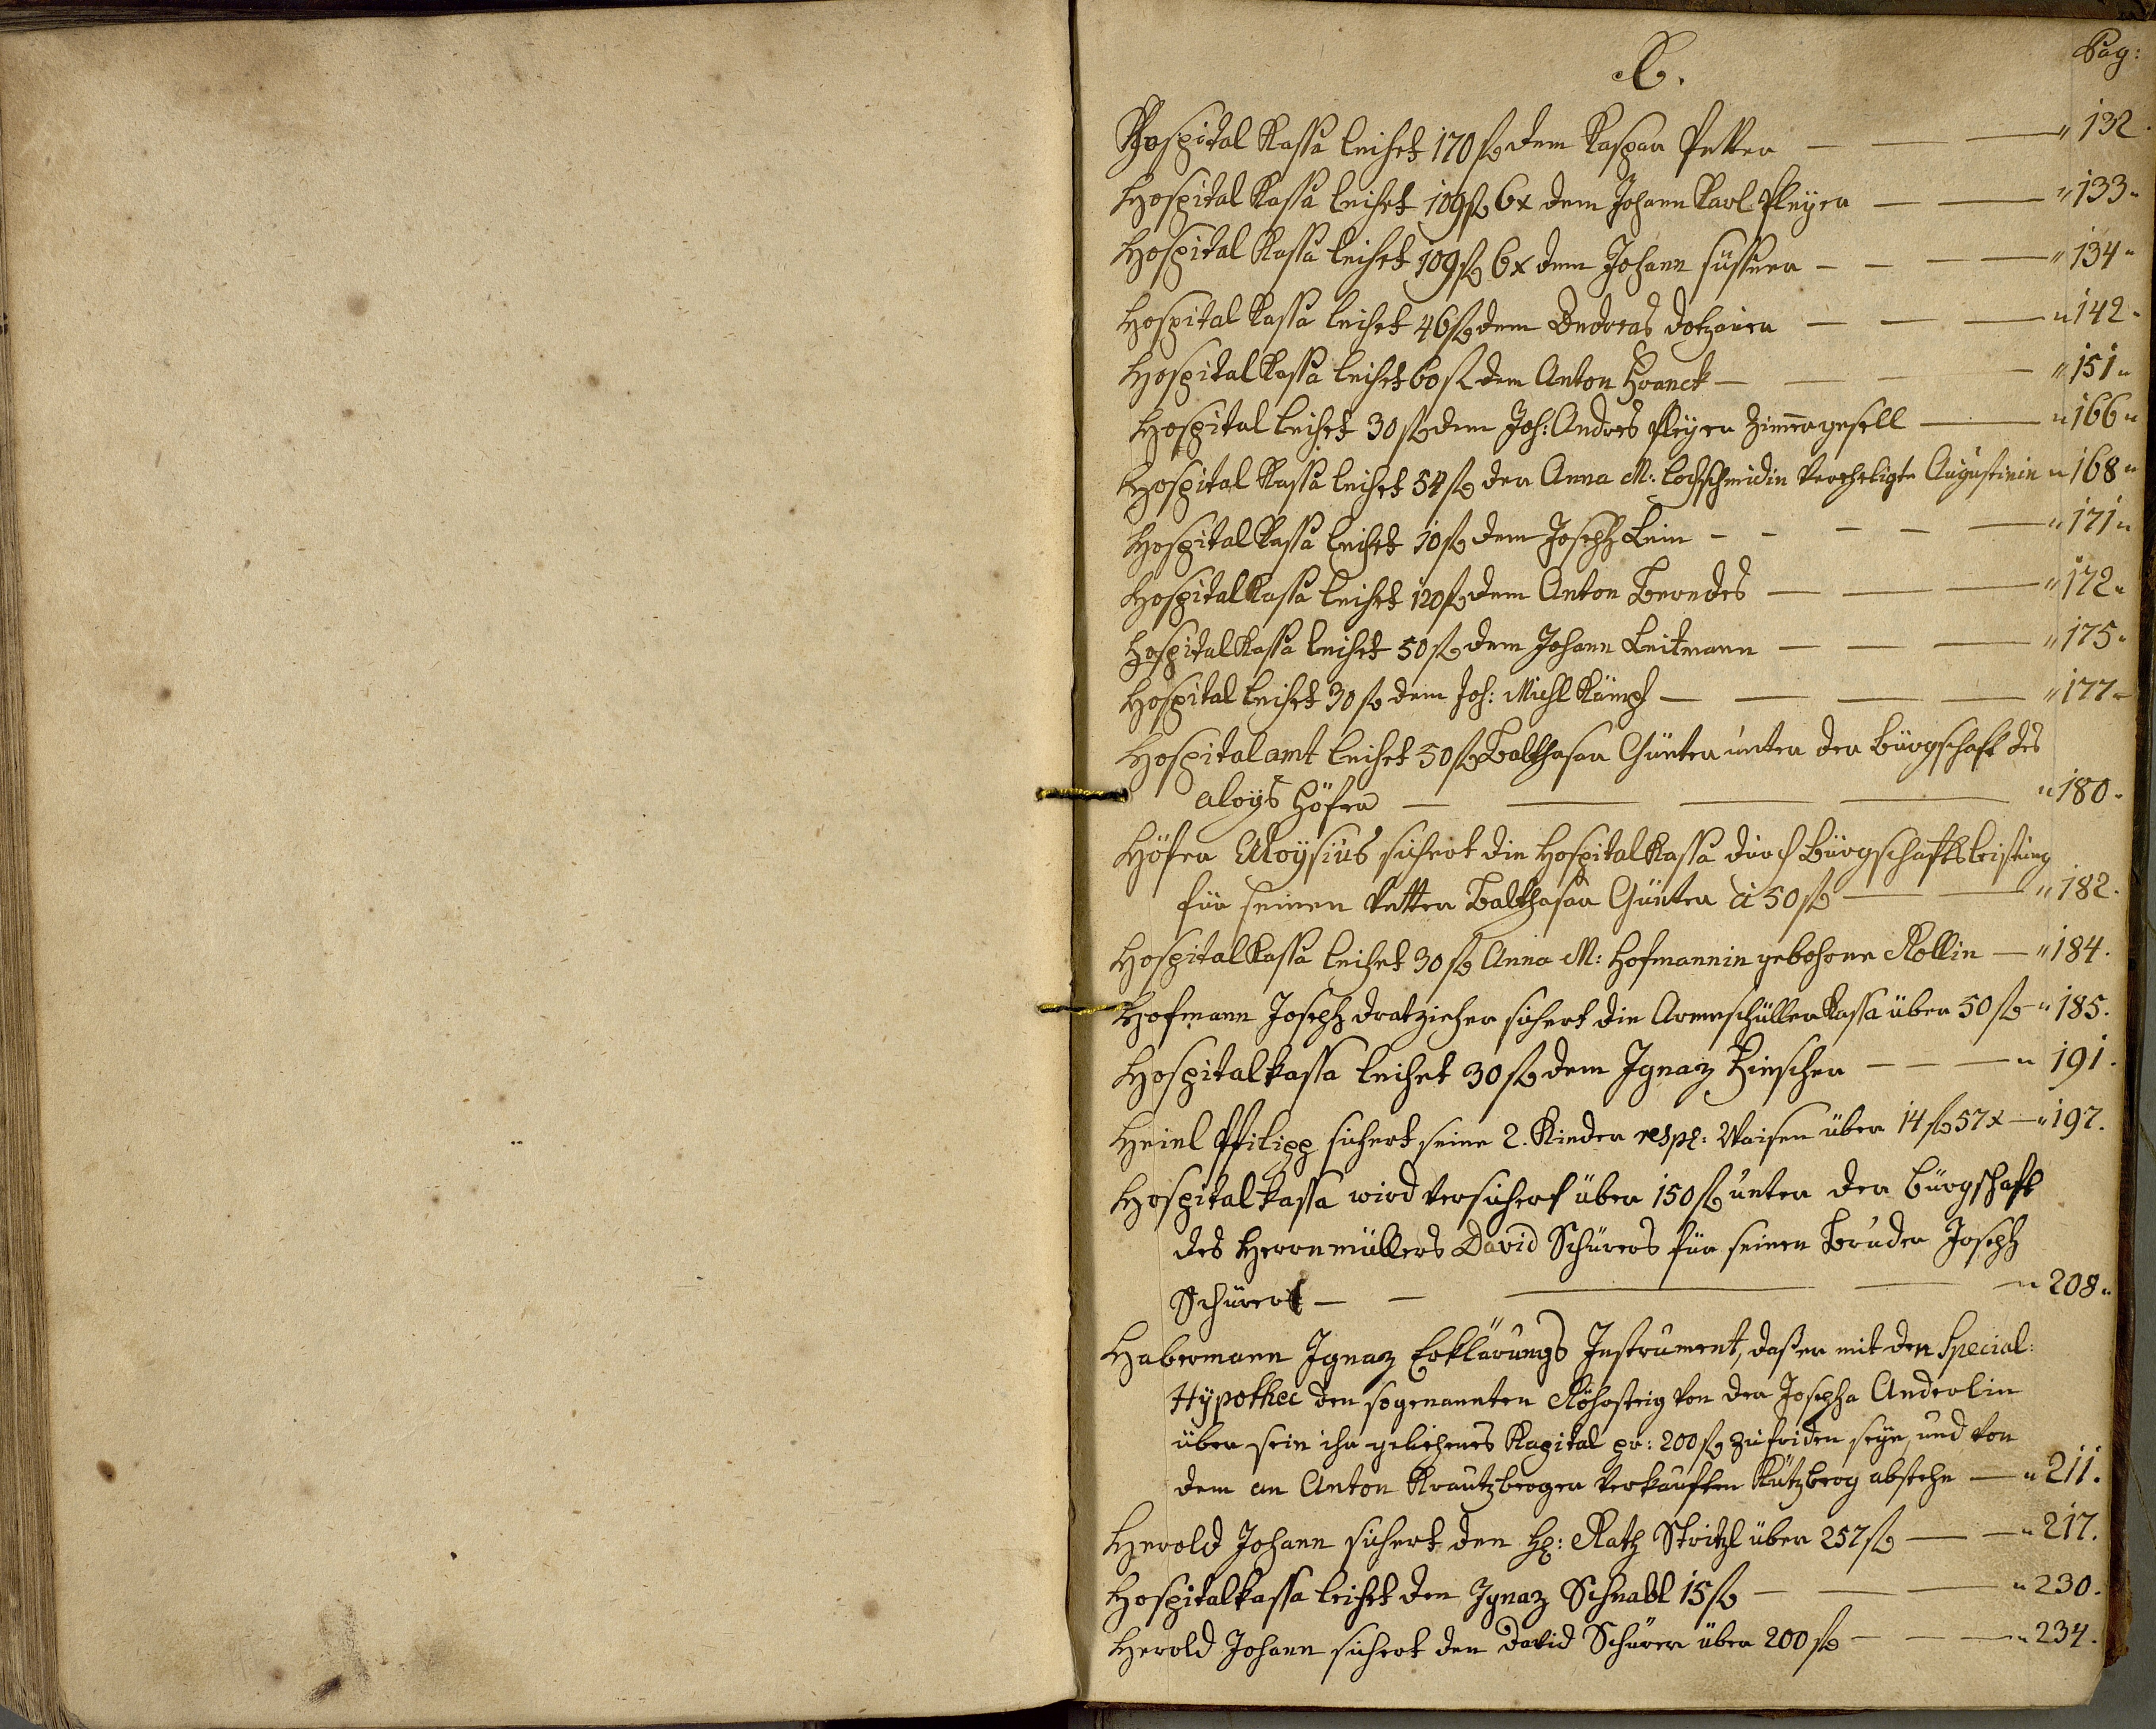 H.
Pag:
Hospital Kassa leihet 170 fl dem Kaspar Petter — — — " 132.
Hospital Kassa leihet 109 fl 6x dem Johann Karl Pleÿer — — " 133 "
Hospital Kassa leihet 109 fl 6x dem Johann süssner — — — — " 134 "
Hospital Kassa leihet 46 fl dem Andreas dotzauer — — — " 142 "
Hospital Kassa leihet 60 fl dem Anton Hranck — — — — " 151 "
Hospital leihet 30 fl dem Joh: Andres Pleÿer Zim̄ergesell — " 166 "
Hospital Kassa leihet 54 fl der Anna M: lochschmidin verehligte Augustinin " 168 "
Hospital Kassa leihet 10 fl dem Joseph Lein — — — — — " 171 "
Hospital Kassa leihet 120 fl dem Anton Berndes — — — " 172 "
Hospital Kassa leihet 50 fl dem Johann Leitmann — — — " 175 "
Hospital leihet 30 fl dem Joh: Michl Kämpf — — — " 177 "
Hospital amt leihet 50 fl Balthasar Günter unter der bürgschaft des
aloÿs Höfer — — — — " 180 "
Höfer Aloÿsius sichert die Hospital Kassa durch bürgschaftsleistung
für seinen vetter Balthasar Günter à 50 fl — — " 182.
Hospital Kassa leihet 30 fl Anna M: Hofmannin gebohrne Kollin — " 184.
Hofmann Joseph dratzieher sichert die Armenschüller Kassa über 50 fl — " 185.
Hospitalkassa leihet 30 fl dem Ignaz Zinscher — — — " 191.
Heinl Philipp sichert seine 2. Kinder resp: Waisen über 14 fl 57x — " 197.
Hospitalkassa wird versichert über 150 fl unter der bürgschaft
des Herrnmüllers David Schürers für seinen Bruder Joseph
Schürer — — — — " 208 "
Habermann Ignaz Erklärungs Instrument, daß er mit der Special:
Hÿpothec den sogenannten Röhrsteig von der Josepha Anderlin
über sein ihr geliehenes Kapital pr: 200 fl zufriden seÿe, und von
dem an Anton Krautzberger verkauften Kützberg abstehe — " 211.
Herold Johann sichert den H: Rath Stritzl über 257 fl — — " 217.
Hospitalkassa leihet den Ignaz Schnabl 15 fl — — — " 230.
Herold Johann sichert den David Schürer über 200 fl — — — " 234.